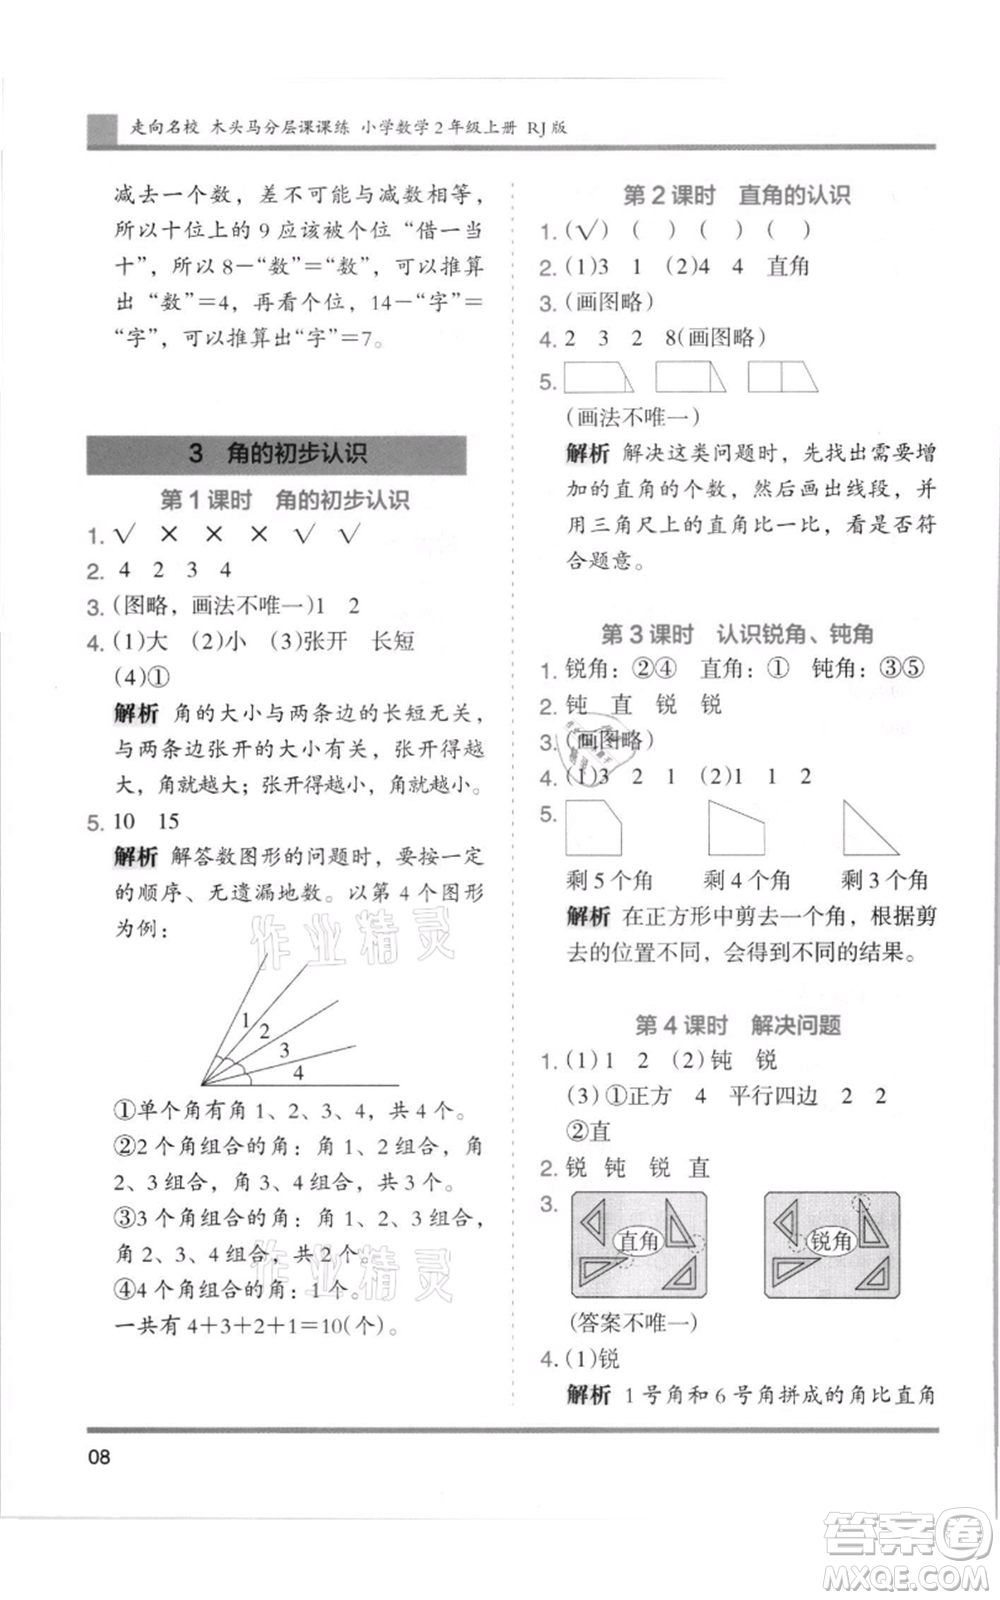 走向名校 木头马分层课课练 小学数学2年级上册 RJ版
减去一个数，差不可能与减数相等，
所以十位上的9应该被个位“借一当
十”，所以8－“数”＝“数”，可以推算
出“数”＝4，再看个位，14－“字”＝
“字”，可以推算出“字”＝7。
3 角的初步认识
第1课时 角的初步认识
1. √ × × × √ √
2. 4 2 3 4
3. (图略，画法不唯一)1 2
4. (1)大 (2)小 (3)张开 长短
(4)①
解析 角的大小与两条边的长短无关，
与两条边张开的大小有关，张开得越
大，角就越大；张开得越小，角就越小。
5. 10 15
解析 解答数图形的问题时，要按一定
的顺序、无遗漏地数。以第4个图形
为例：
1
2
3
4
①单个角有角1、2、3、4，共4个。
②2个角组合的角：角1、2组合，角
2、3组合，角3、4组合，共3个。
③3个角组合的角：角1、2、3组合，
角2、3、4组合，共2个。
④4个角组合的角：1个。
一共有4＋3＋2＋1＝10(个)。
第2课时 直角的认识
1. (√) ( ) ( ) ( )
2. (1)3 1 (2)4 4 直角
3. (画图略)
4. 2 3 2 8(画图略)
5.
(画法不唯一)
解析 解决这类问题时，先找出需要增
加的直角的个数，然后画出线段，并
用三角尺上的直角比一比，看是否符
合题意。
第3课时 认识锐角、钝角
1. 锐角：②④ 直角：① 钝角：③⑤
2. 钝 直 锐 锐
3. (画图略)
4. (1)3 2 1 (2)1 1 2
5.
剩5个角 剩4个角 剩3个角
解析 在正方形中剪去一个角，根据剪
去的位置不同，会得到不同的结果。
第4课时 解决问题
1. (1)1 2 (2)钝 锐
(3)①正方 4 平行四边 2 2
②直
2. 锐 钝 锐 直
3.
直角
锐角
(答案不唯一)
4. (1)锐
解析 1号角和6号角拼成的角比直角
08
作业精灵
作业精灵
答案卷
MXQE.COM